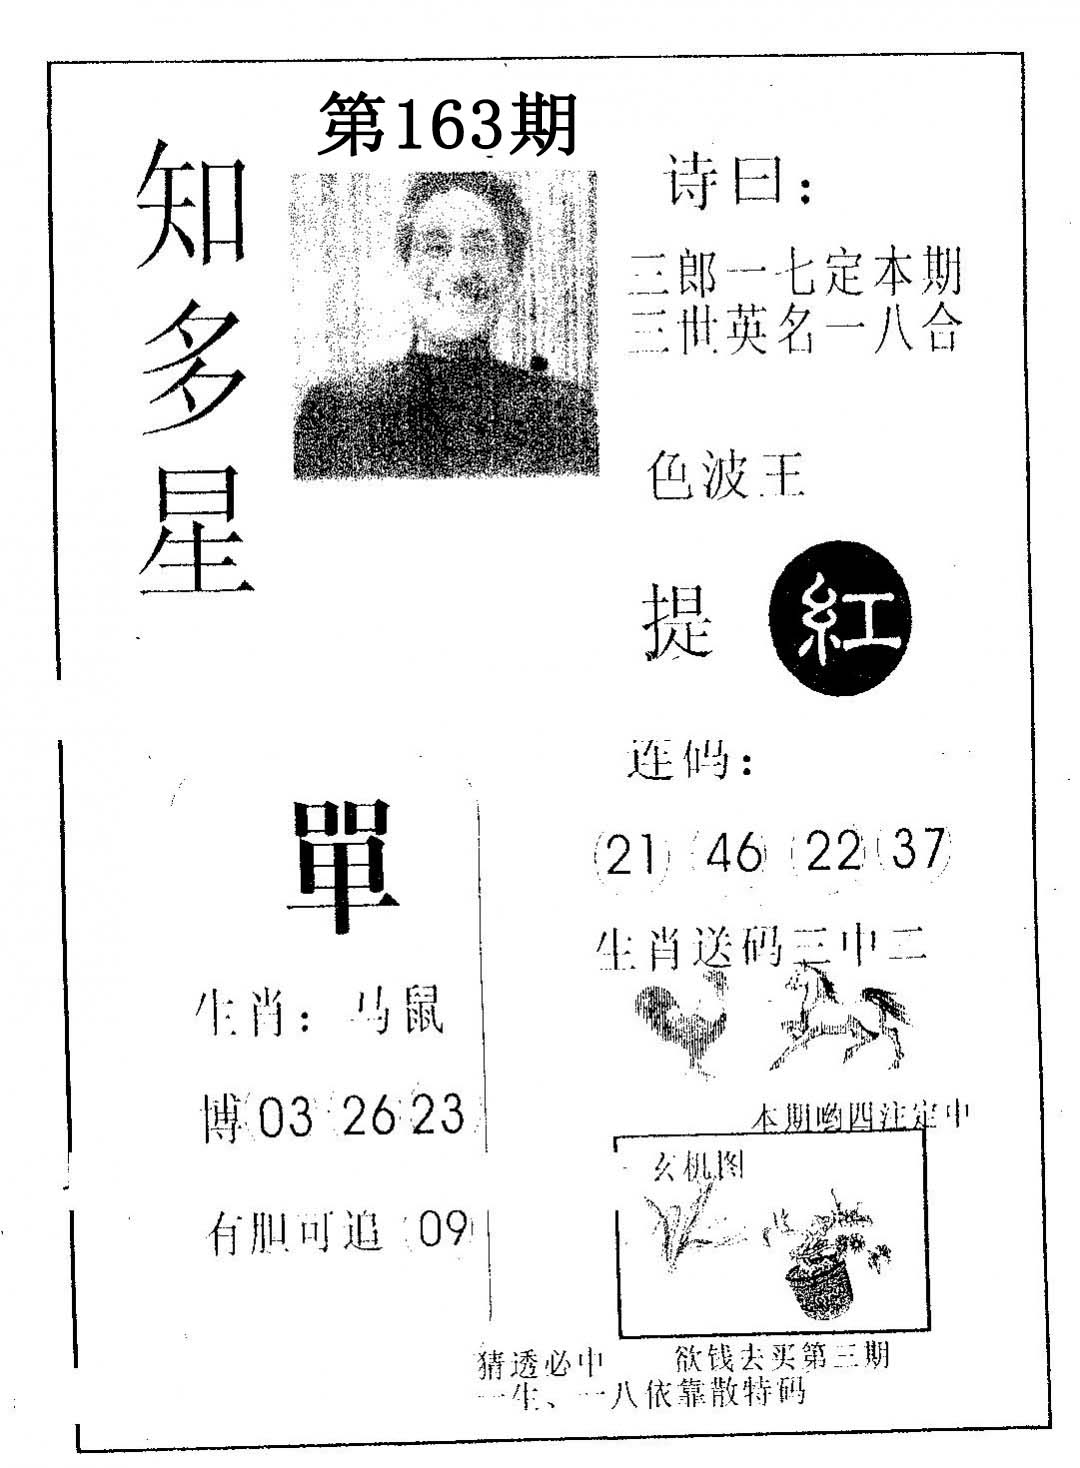 第163期
知多星
诗曰：
三郎一七定本期
三世英名一八合
色波王
提 紅
连码：
21 46 22 37
生肖送码三中二
單
生肖：马鼠
博 03 26 23
有胆可追 09
本期哟四注定中
玄机图
猜透必中 欲钱去买第三期
一生、一八依靠散特码